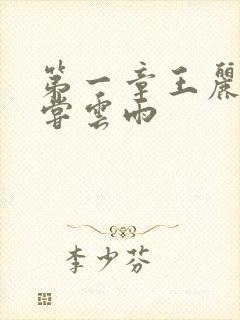 第一章王麗
嘗雲雨
李少芬